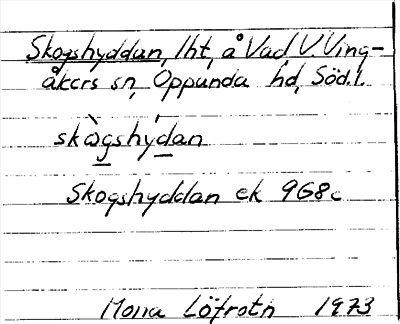 Skogshyddan, lht, å Vad V. Ving-
åkers sn, Oppunda hd, Söd.l.
skò̲gshýda̲n
Skogshyddan ek 9G8c
Mona Löfroth 1973